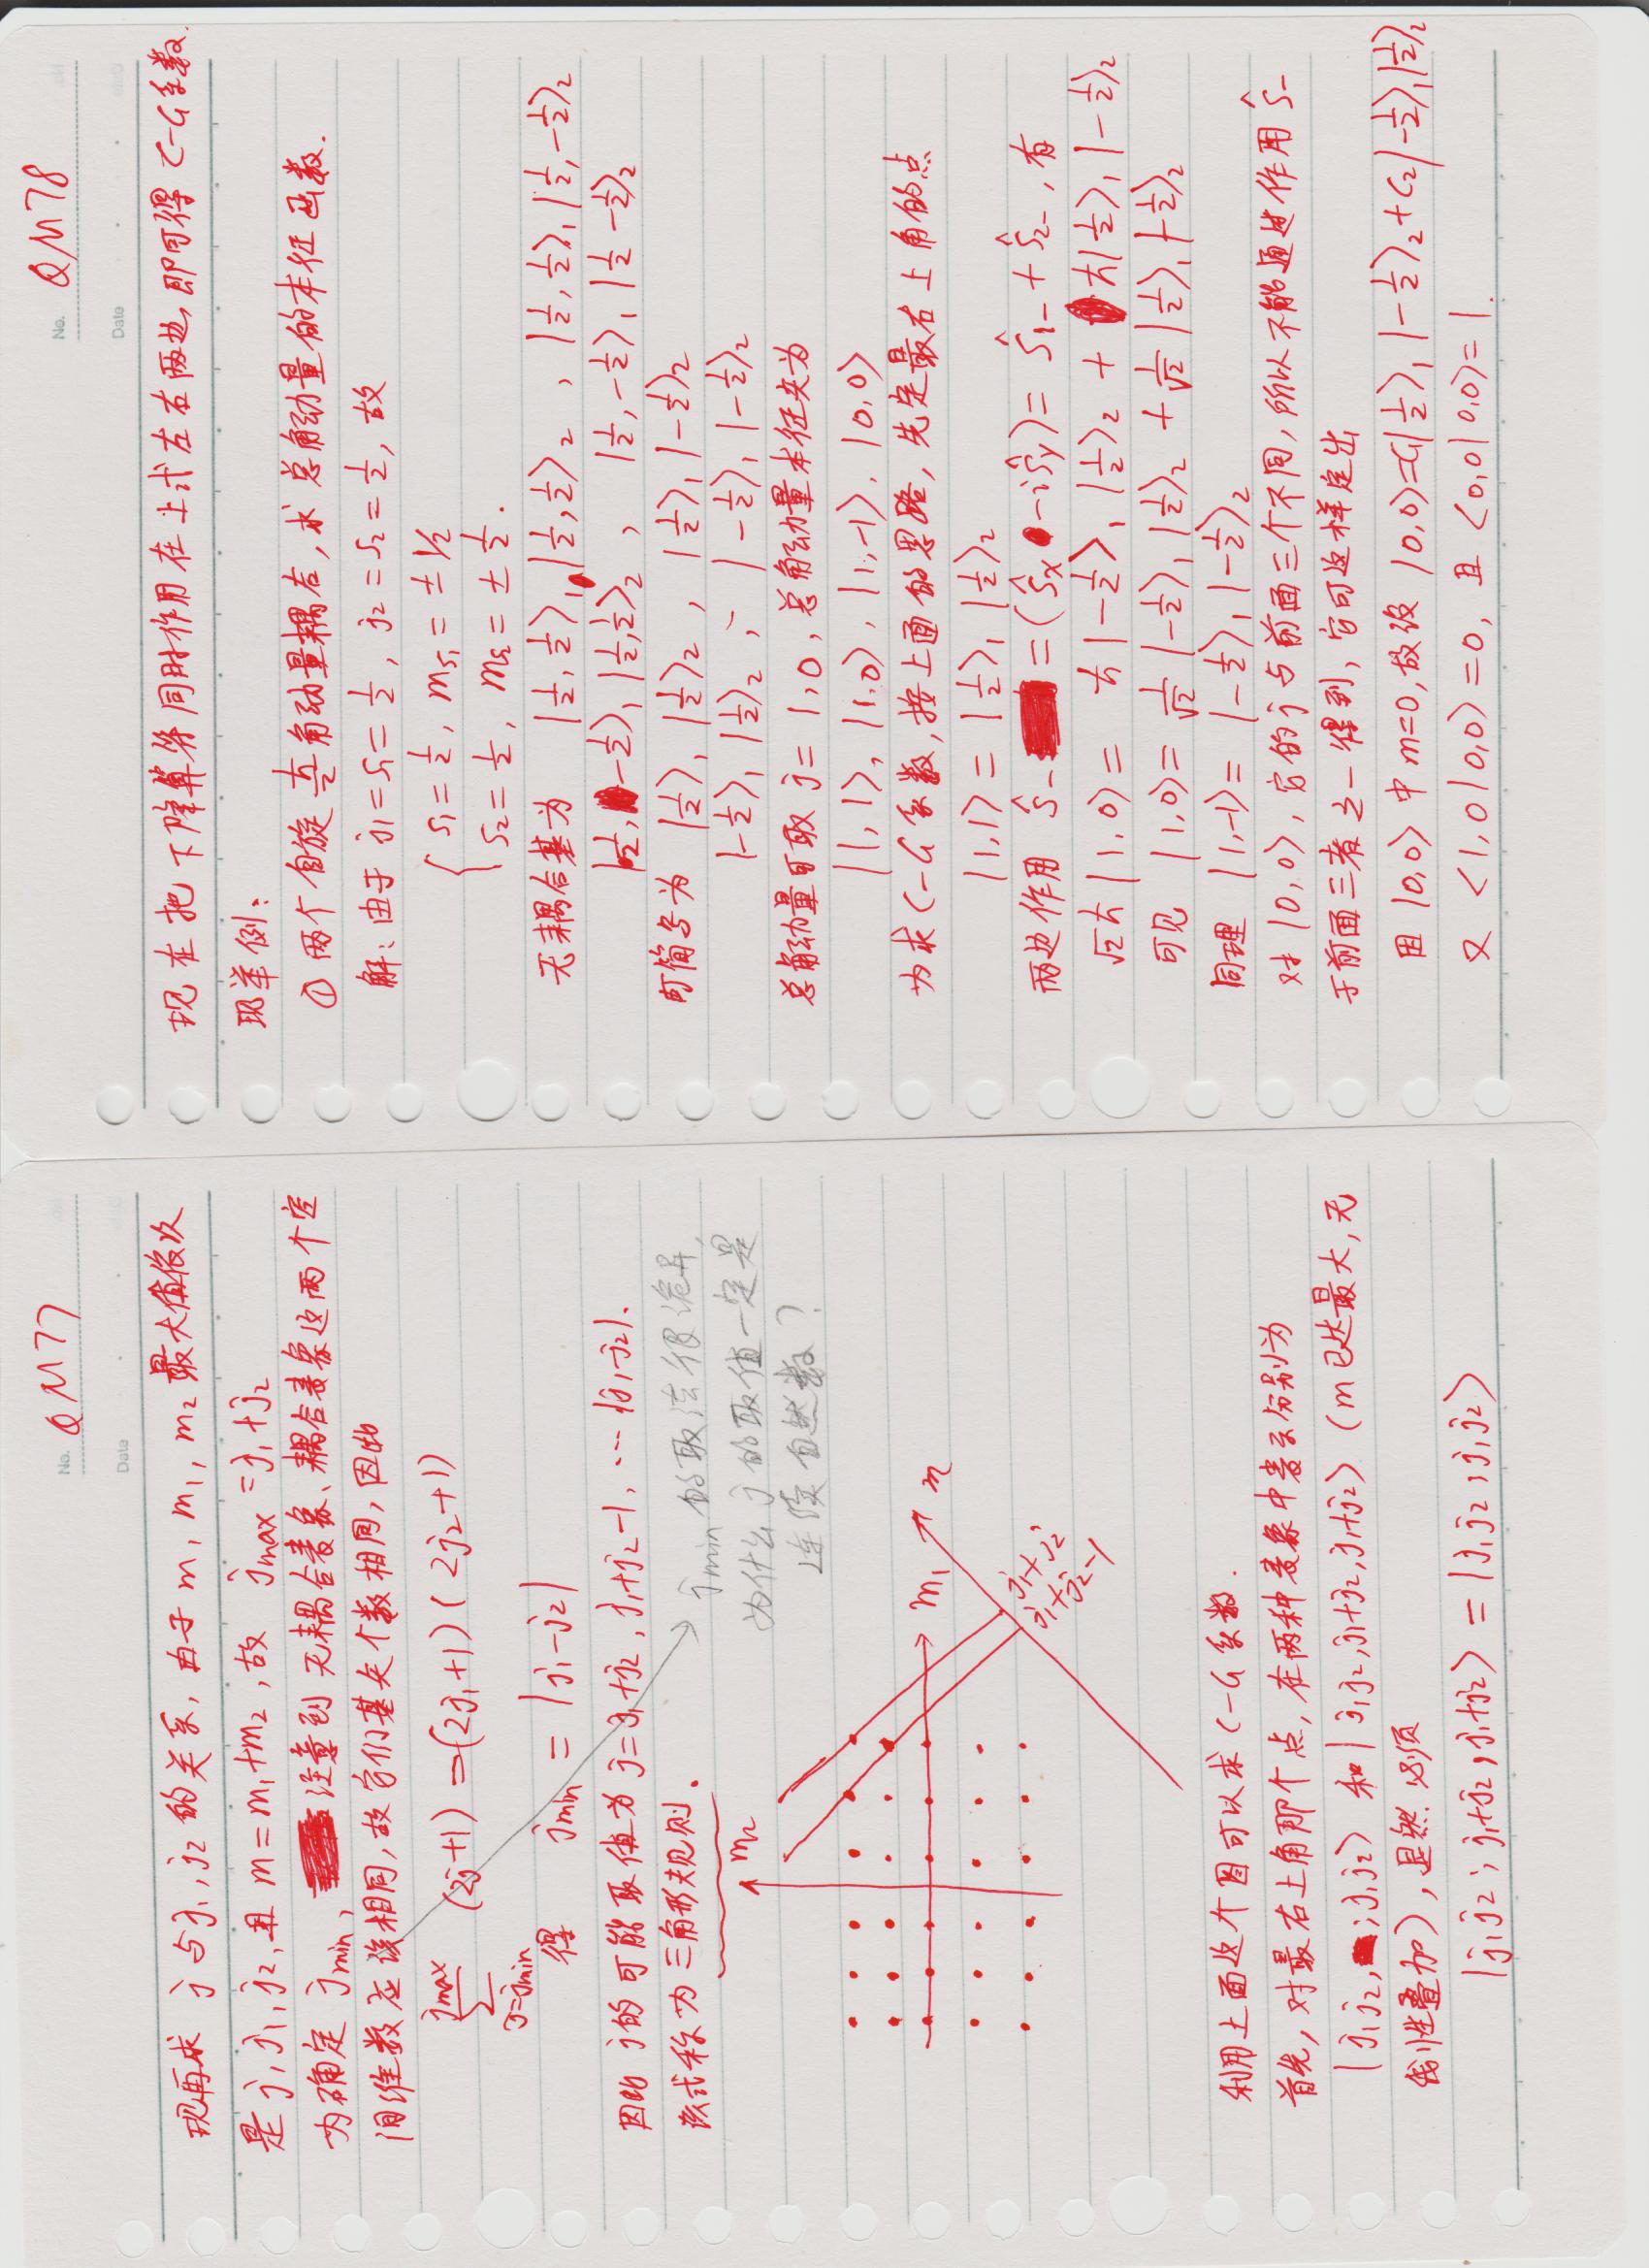 No. QM77
Date
现再求 j 与 j₁, j₂ 的关系, 由于 m, m₁, m₂ 最大值依次
是 j, j₁, j₂, 且 m = m₁+m₂, 故 j_max = j₁+j₂
为确定 j_min, 注意到 无耦合表象、耦合表象这两个空
间维数应该相同, 故它们基矢个数相同, 因此
∑_{j=j_min}^{j_max} (2j+1) = (2j₁+1)(2j₂+1)
得 j_min = |j₁-j₂|
因此 j的可能取值为 j=j₁+j₂, j₁+j₂-1, ⋯ |j₁-j₂|.
该式称为三角形规则.
j_min 的取法很诡异,
为什么 j 的取值一定是
连续自然数?
m₂
m₁
m
j₁+j₂
j₁+j₂-1
利用上面这个图可以求 C-G 系数.
首先, 对最右上角那个点, 在两种表象中表示分别为
|j₁j₂, ; j₁j₂⟩ 和 | j₁j₂, j₁+j₂, j₁+j₂⟩ (m已达最大, 无
线性叠加), 显然必须
|j₁j₂; j₁+j₂, j₁+j₂⟩ = |j₁j₂; j₁j₂⟩
No. QM78
Date
现在把下降算符同时作用在上式左右两边, 即可得 C-G系数.
现举例:
① 两个自旋 ½ 角动量耦合, 求总角动量的本征函数.
解: 由于 j₁=s₁=½, j₂=s₂=½, 故
{ s₁=½, m_{s₁}=±1/2
s₂=½, m_{s₂}=±½.
无耦合基为 |½,½⟩₁ |½,½⟩₂ , |½,½⟩₁ |½,-½⟩₂
|½,-½⟩₁ |½,½⟩₂ , |½,-½⟩₁ |½ -½⟩₂
可简写为 |½⟩₁ |½⟩₂ , |½⟩₁ |-½⟩₂
|-½⟩₁ |½⟩₂ , |-½⟩₁ |-½⟩₂
总角动量可取 j=1,0, 总角动量本征矢为
|1,1⟩, |1,0⟩, |1,-1⟩, |0,0⟩
为求 C-G 系数, 按上面的思路, 先定最右上角的点
|1,1⟩ = |½⟩₁ |½⟩₂
两边作用 Ŝ₋ = (Ŝₓ -iŜ_y) = Ŝ₁₋ + Ŝ₂₋, 有
√2ħ |1,0⟩ = ħ|-½⟩₁ |½⟩₂ + ħ|½⟩₁ |-½⟩₂
可见 |1,0⟩ = 1/√2 |-½⟩₁ |½⟩₂ + 1/√2 |½⟩₁ |-½⟩₂
同理 |1,-1⟩ = |-½⟩₁ |-½⟩₂
对 |0,0⟩, 它的 j 与前面三个不同, 所以不能通过作用 Ŝ₋
于前面三者之一得到, 它可这样定出
因 |0,0⟩ 中 m=0, 故设 |0,0⟩=C₁|½⟩₁ |-½⟩₂+C₂|-½⟩₁|½⟩₂
又 ⟨1,0|0,0⟩=0, 且 ⟨0,0|0,0⟩=1.